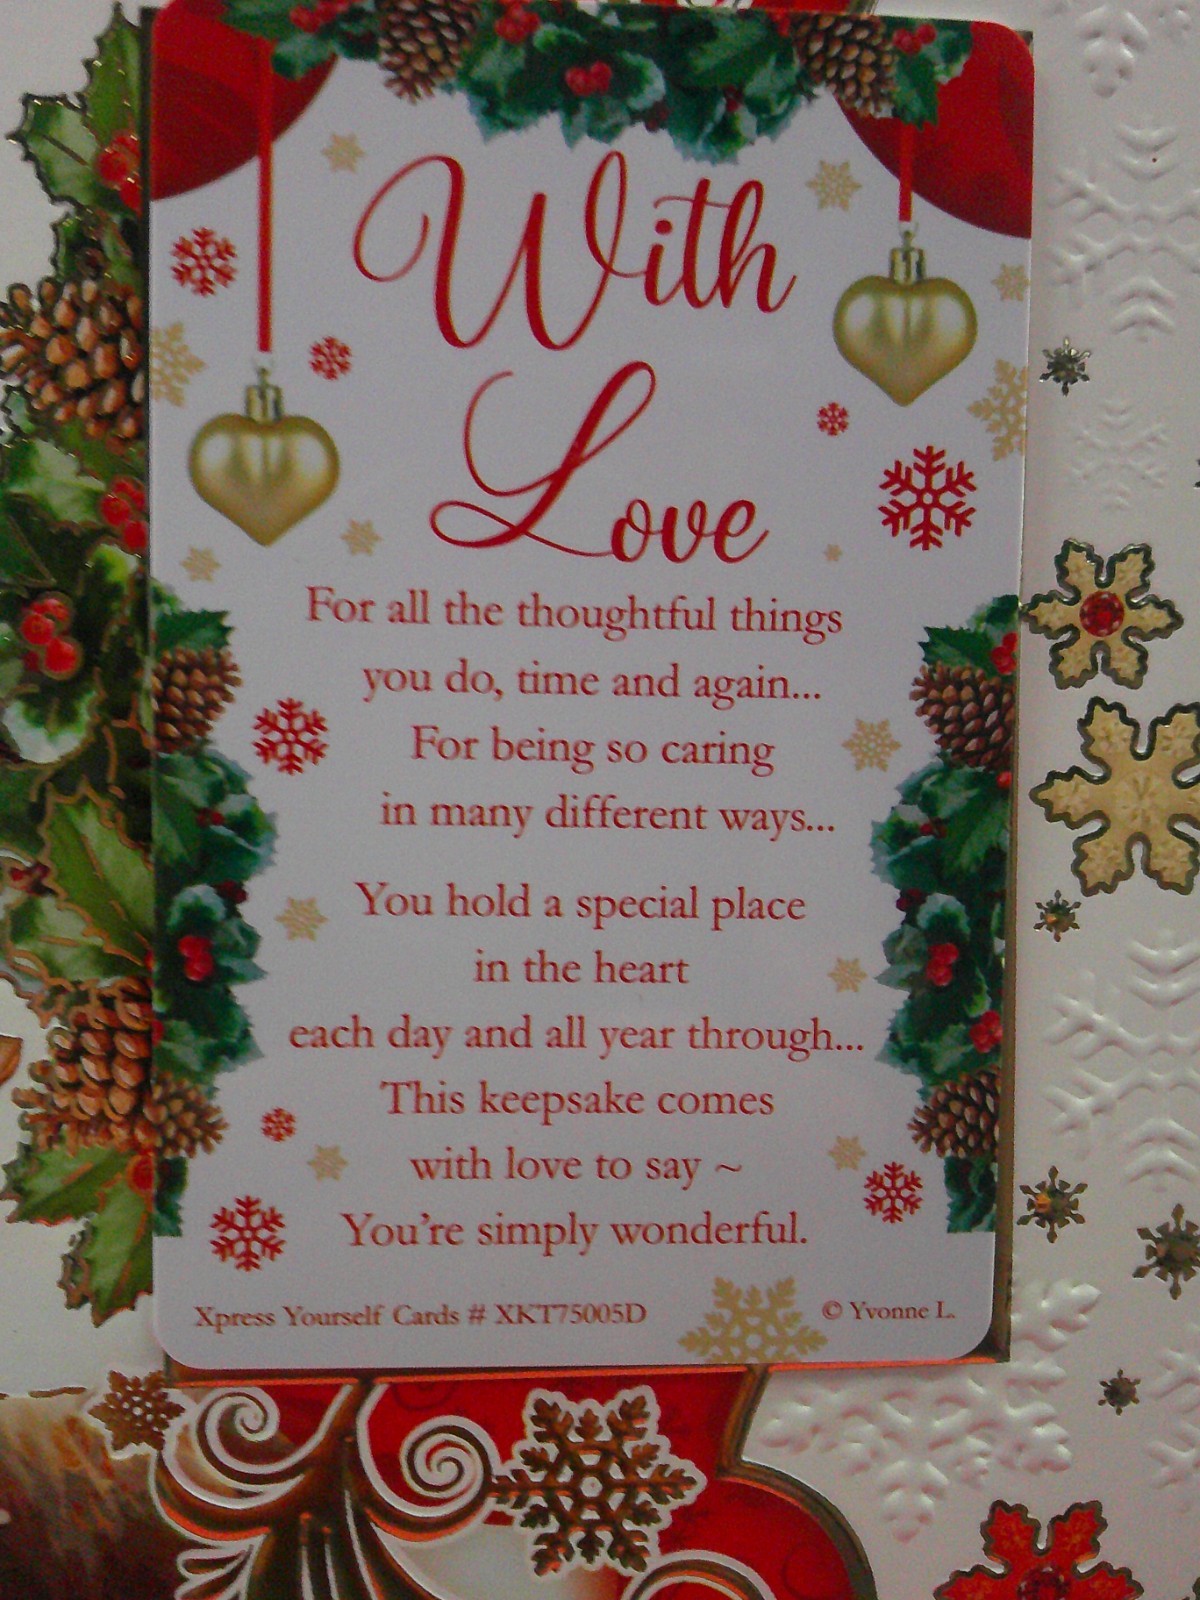 With
Love
For all the thoughtful things
you do, time and again...
For being so caring
in many different ways...
You hold a special place
in the heart
each day and all year through...
This keepsake comes
with love to say ~
You're simply wonderful.
Xpress Yourself Cards # XKT75005D © Yvonne L.